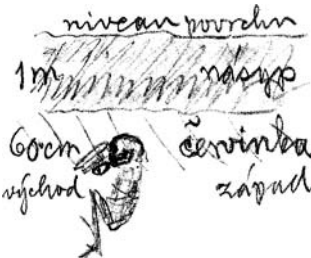 niveau povrchu
1m násyp
60cm červinka
východ západ